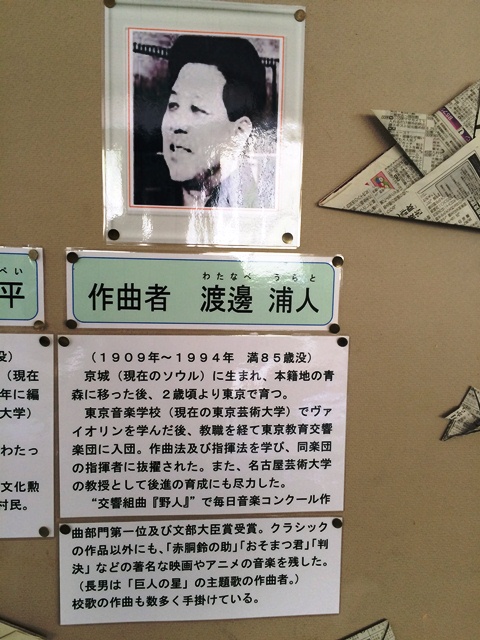 わたなべ うらと
作曲者 渡邊 浦人
(1909年〜1994年 満85歳没)
京城(現在のソウル)に生まれ、本籍地の青
森に移った後、2歳頃より東京で育つ。
東京音楽学校(現在の東京芸術大学)でヴァ
イオリンを学んだ後、教職を経て東京教育交響
楽団に入団。作曲法及び指揮法を学び、同楽団
の指揮者に抜擢された。また、名古屋芸術大学
の教授として後進の育成にも尽力した。
“交響組曲『野人』”で毎日音楽コンクール作
曲部門第一位及び文部大臣賞受賞。クラシック
の作品以外にも、「赤胴鈴の助」「おそまつ君」「判
決」などの著名な映画やアニメの音楽を残した。
(長男は「巨人の星」の主題歌の作曲者。)
校歌の作曲も数多く手掛けている。
べい
平
没)
(現在
年に編
大学)
わたっ
文化勲
村民。